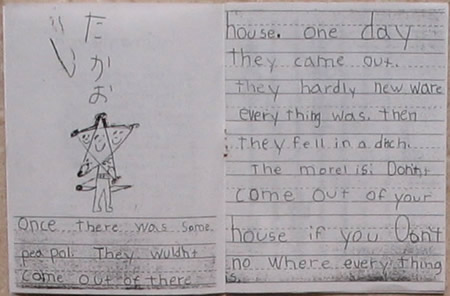 たかお
Once there was some
pea pol. They wuldnt
come out of there
house. one day
they came out.
they hardly new ware
every thing was. then
they fell in a dich.
The morel is: Don't
come out of your
house if you Don't
no where every thing
is.